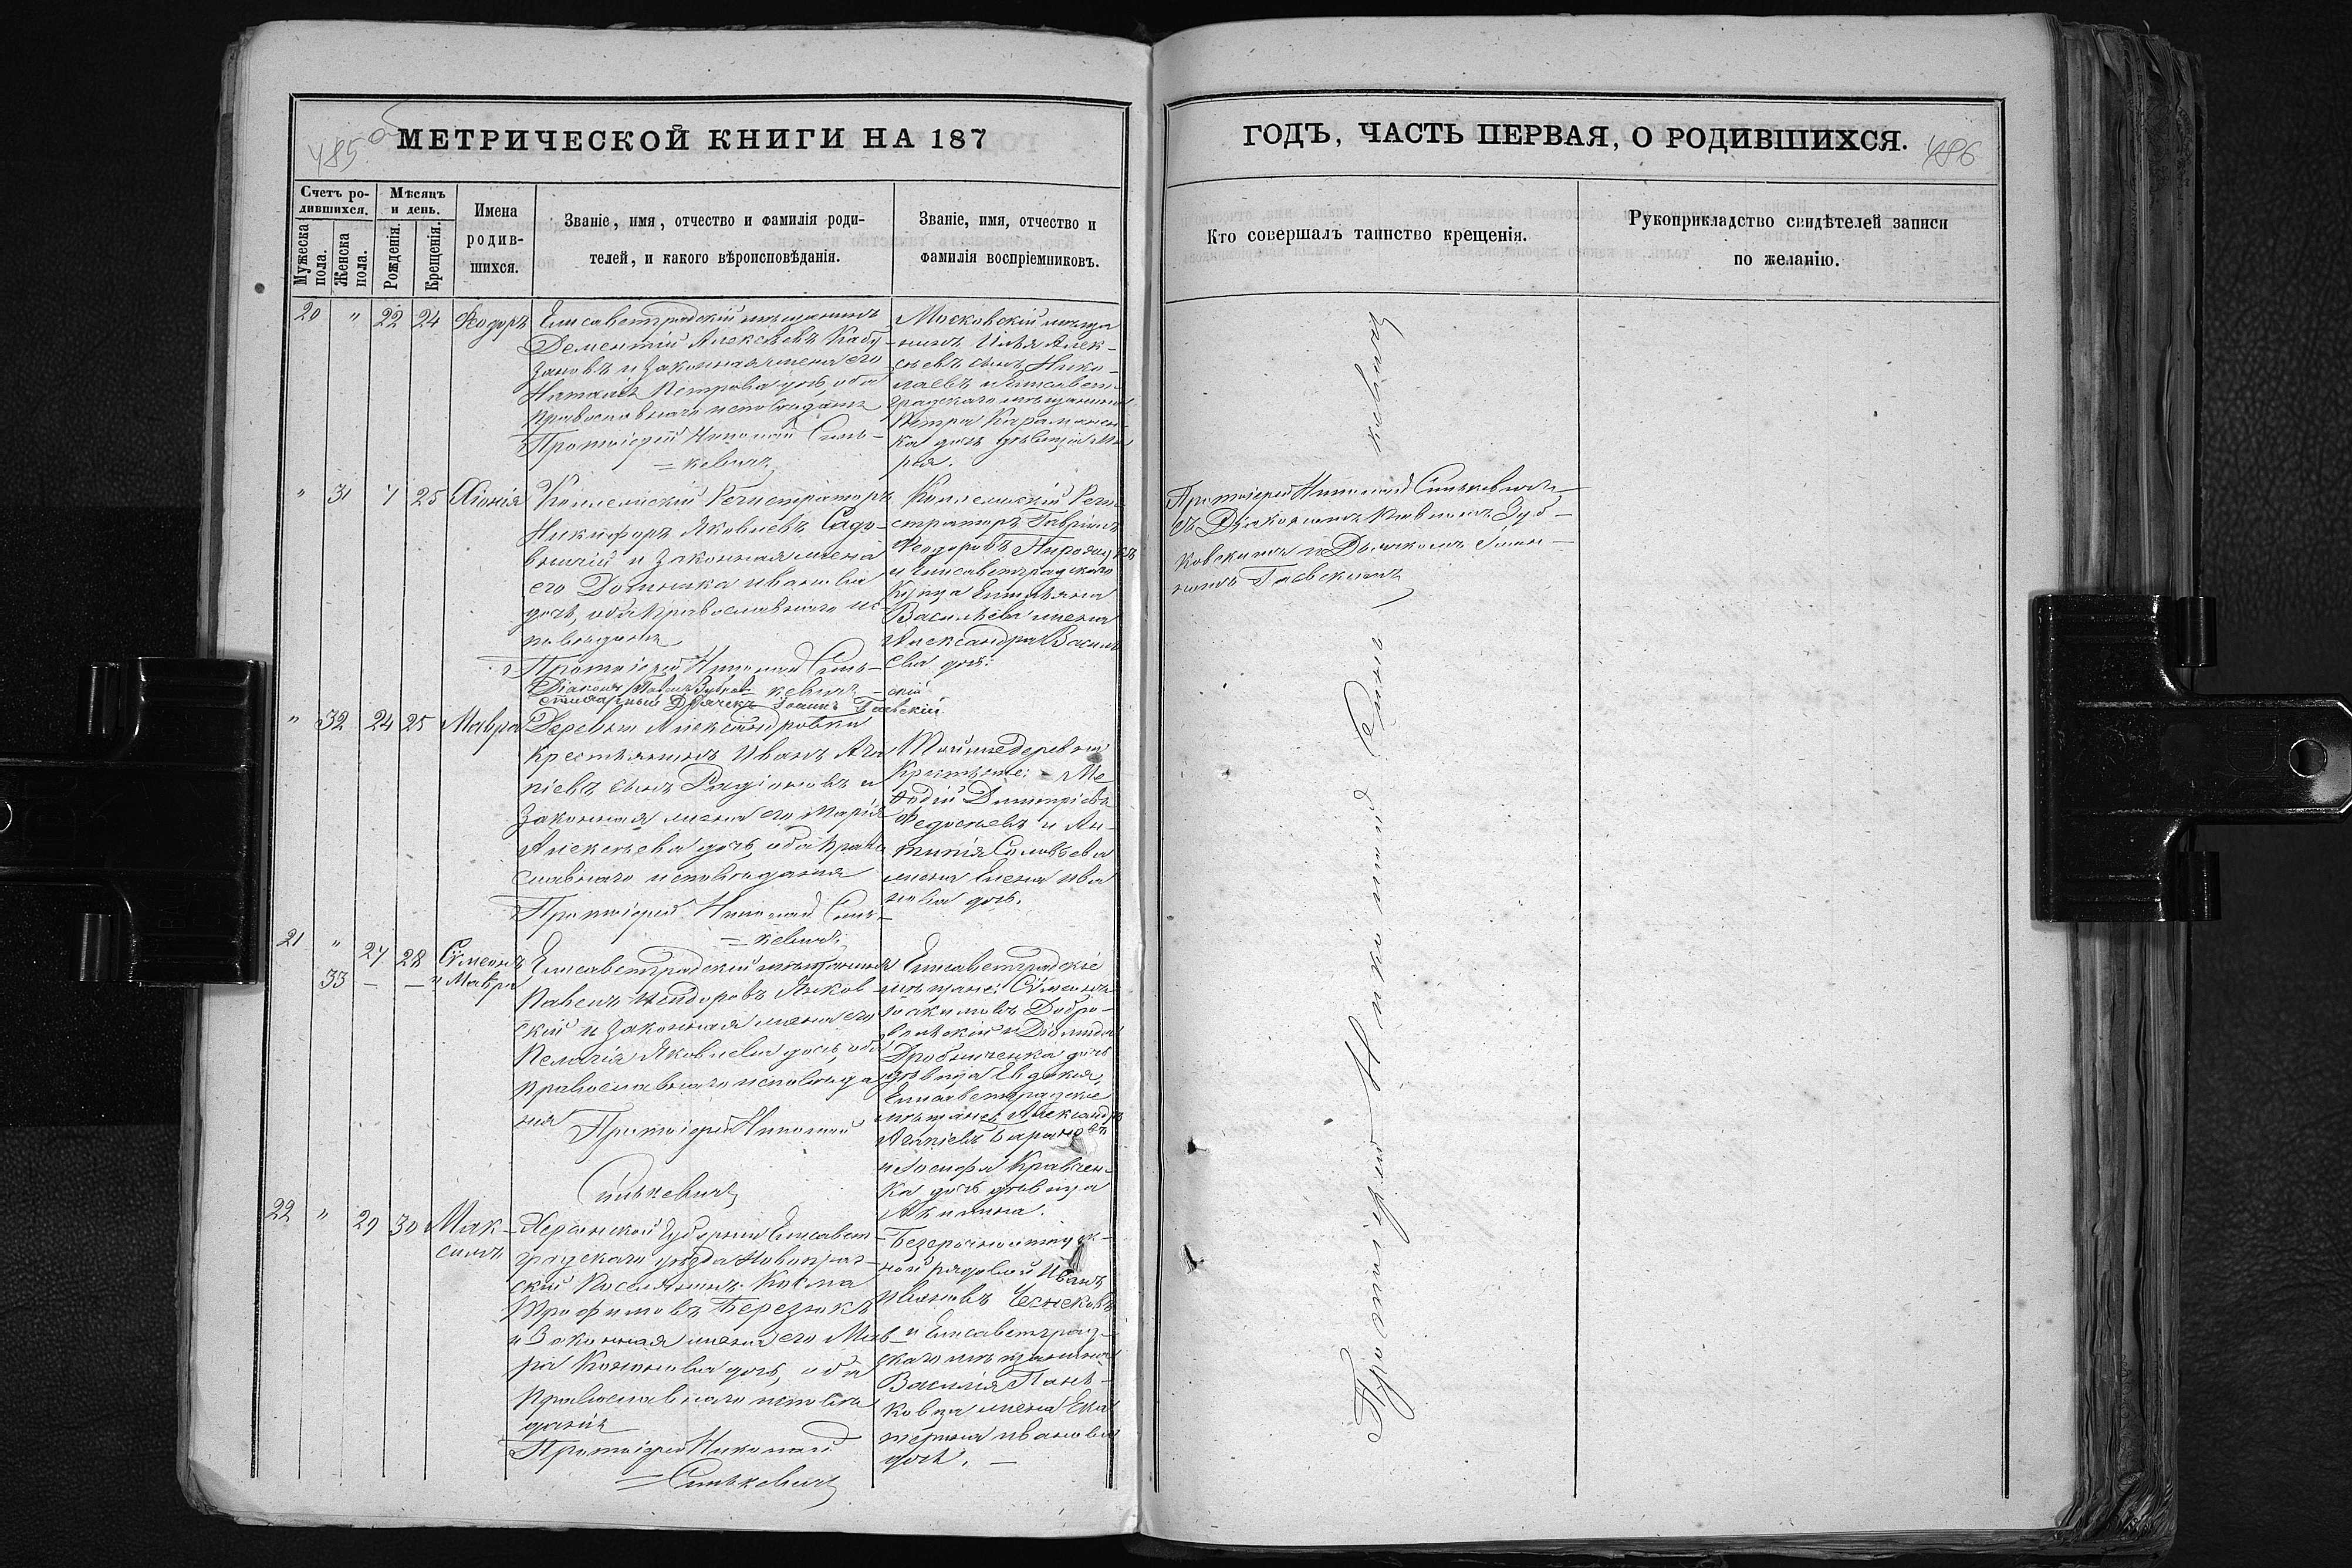 485 об
МЕТРИЧЕСКОЙ КНИГИ НА 187
Счетъ ро-
дившихся.
Мужеска
пола.
Женска
пола.
Мѣсяцъ
и день.
Рожденія.
Крещенія.
Имена
родив-
шихся.
Званіе, имя, отчество и фамилія роди-
телей, и какого вѣроисповѣданія.
Званіе, имя, отчество и
фамилія воспріемниковъ.
20 " 22 24 Ѳеодоръ
Елисаветградскій мѣщанинъ
Дементій Алексѣевъ Кабу-
зановъ и законная жена его
Наталія Петрова дочь, оба
православнаго исповѣданія
Протоіерей Николай Синь-
=кевичъ
Московскій мѣща
нинъ Илья Алек-
сѣевъ сынъ Нико-
лаевъ и Елисавет-
градскаго мѣщанина
Петра
ка дочь дѣвица Ма
рія.
" 31 7 25 Хіонія
Коллежскій Регистраторъ
Никифоръ Яковлевъ Садо-
вничій и законная жена
его Домника Иванова
дочь, оба православнаго ис-
повѣданія
Протоіерей Николай Синь-
кевичъ
Діаконъ Павелъ Зубков-скій
Дьячекъ Іоаннъ Гаевскій
Коллежскій Реги-
страторъ Гавріилъ
Ѳеодоровъ
и Елисаветградскаго
купца Емельяна
Васильева жена
Александра Василь
ева дочь.
" 32 24 25 Мавра
Деревни Александровки
крестьянинъ Иванъ Ага
піевъ сынъ Радіоновъ и
законная жена его Марія
Алексѣева дочь, оба право
славнаго исповѣданія
Протоіерей Николай Синь-
=кевичъ
Той же деревни
крестьяне: Ме
ѳодій Димитріевъ
Федосѣевъ и Ан-
типія Соловьева
жена Елена Ива
нова дочь.
21 " 27 28 Сѵмеонъ
33 — — и Мавра
Елисаветградскій мѣщанинъ
Павелъ Исидоровъ Янков-
скій и законная жена его
Пелагія Яковлева дочь, оба
православнаго исповѣда
нія
Протоіерей Николай
Синькевичъ
Елисаветградскіе
мѣщане: Сѵмеонъ
Іоакимовъ Добро-
вольскій и Діомида
Дробниченка дочь
дѣвица Евдокія,
Елисаветградскіе
мѣщане: Александръ
Агапіевъ Барановъ
и Іосифа Кравчен-
ка дочь дѣвица
Акилина.
22 " 29 30 Мак-
симъ
Херсонской губерніи Елисавет-
градскаго уѣзда Новопраг-
скій поселянинъ Косма
Трофимовъ Березюкъ
и законная жена его Мав-
ра Кононова дочь, оба
православнаго исповѣ
данія
Протоіерей Николай
=Синькевичъ
Безсрочноотпуск-
ной рядовой Иванъ
Ивановъ Чесноковъ
и Елисаветград-
скаго мѣщанина
Василія Пань-
ковца жена Ека
терина Иванова
дочь. —
ГОДЪ, ЧАСТЬ ПЕРВАЯ, О РОДИВШИХСЯ.
486
Кто совершалъ таинство крещенія.
Рукоприкладство свидѣтелей записи
по желанію.
Протоіерей Николай Синькевичъ
съ Діакономъ Павломъ Зуб-
ковскимъ и Дьячкомъ Іоан-
номъ Гаевскимъ
Протоіерей Николай Синькевичъ